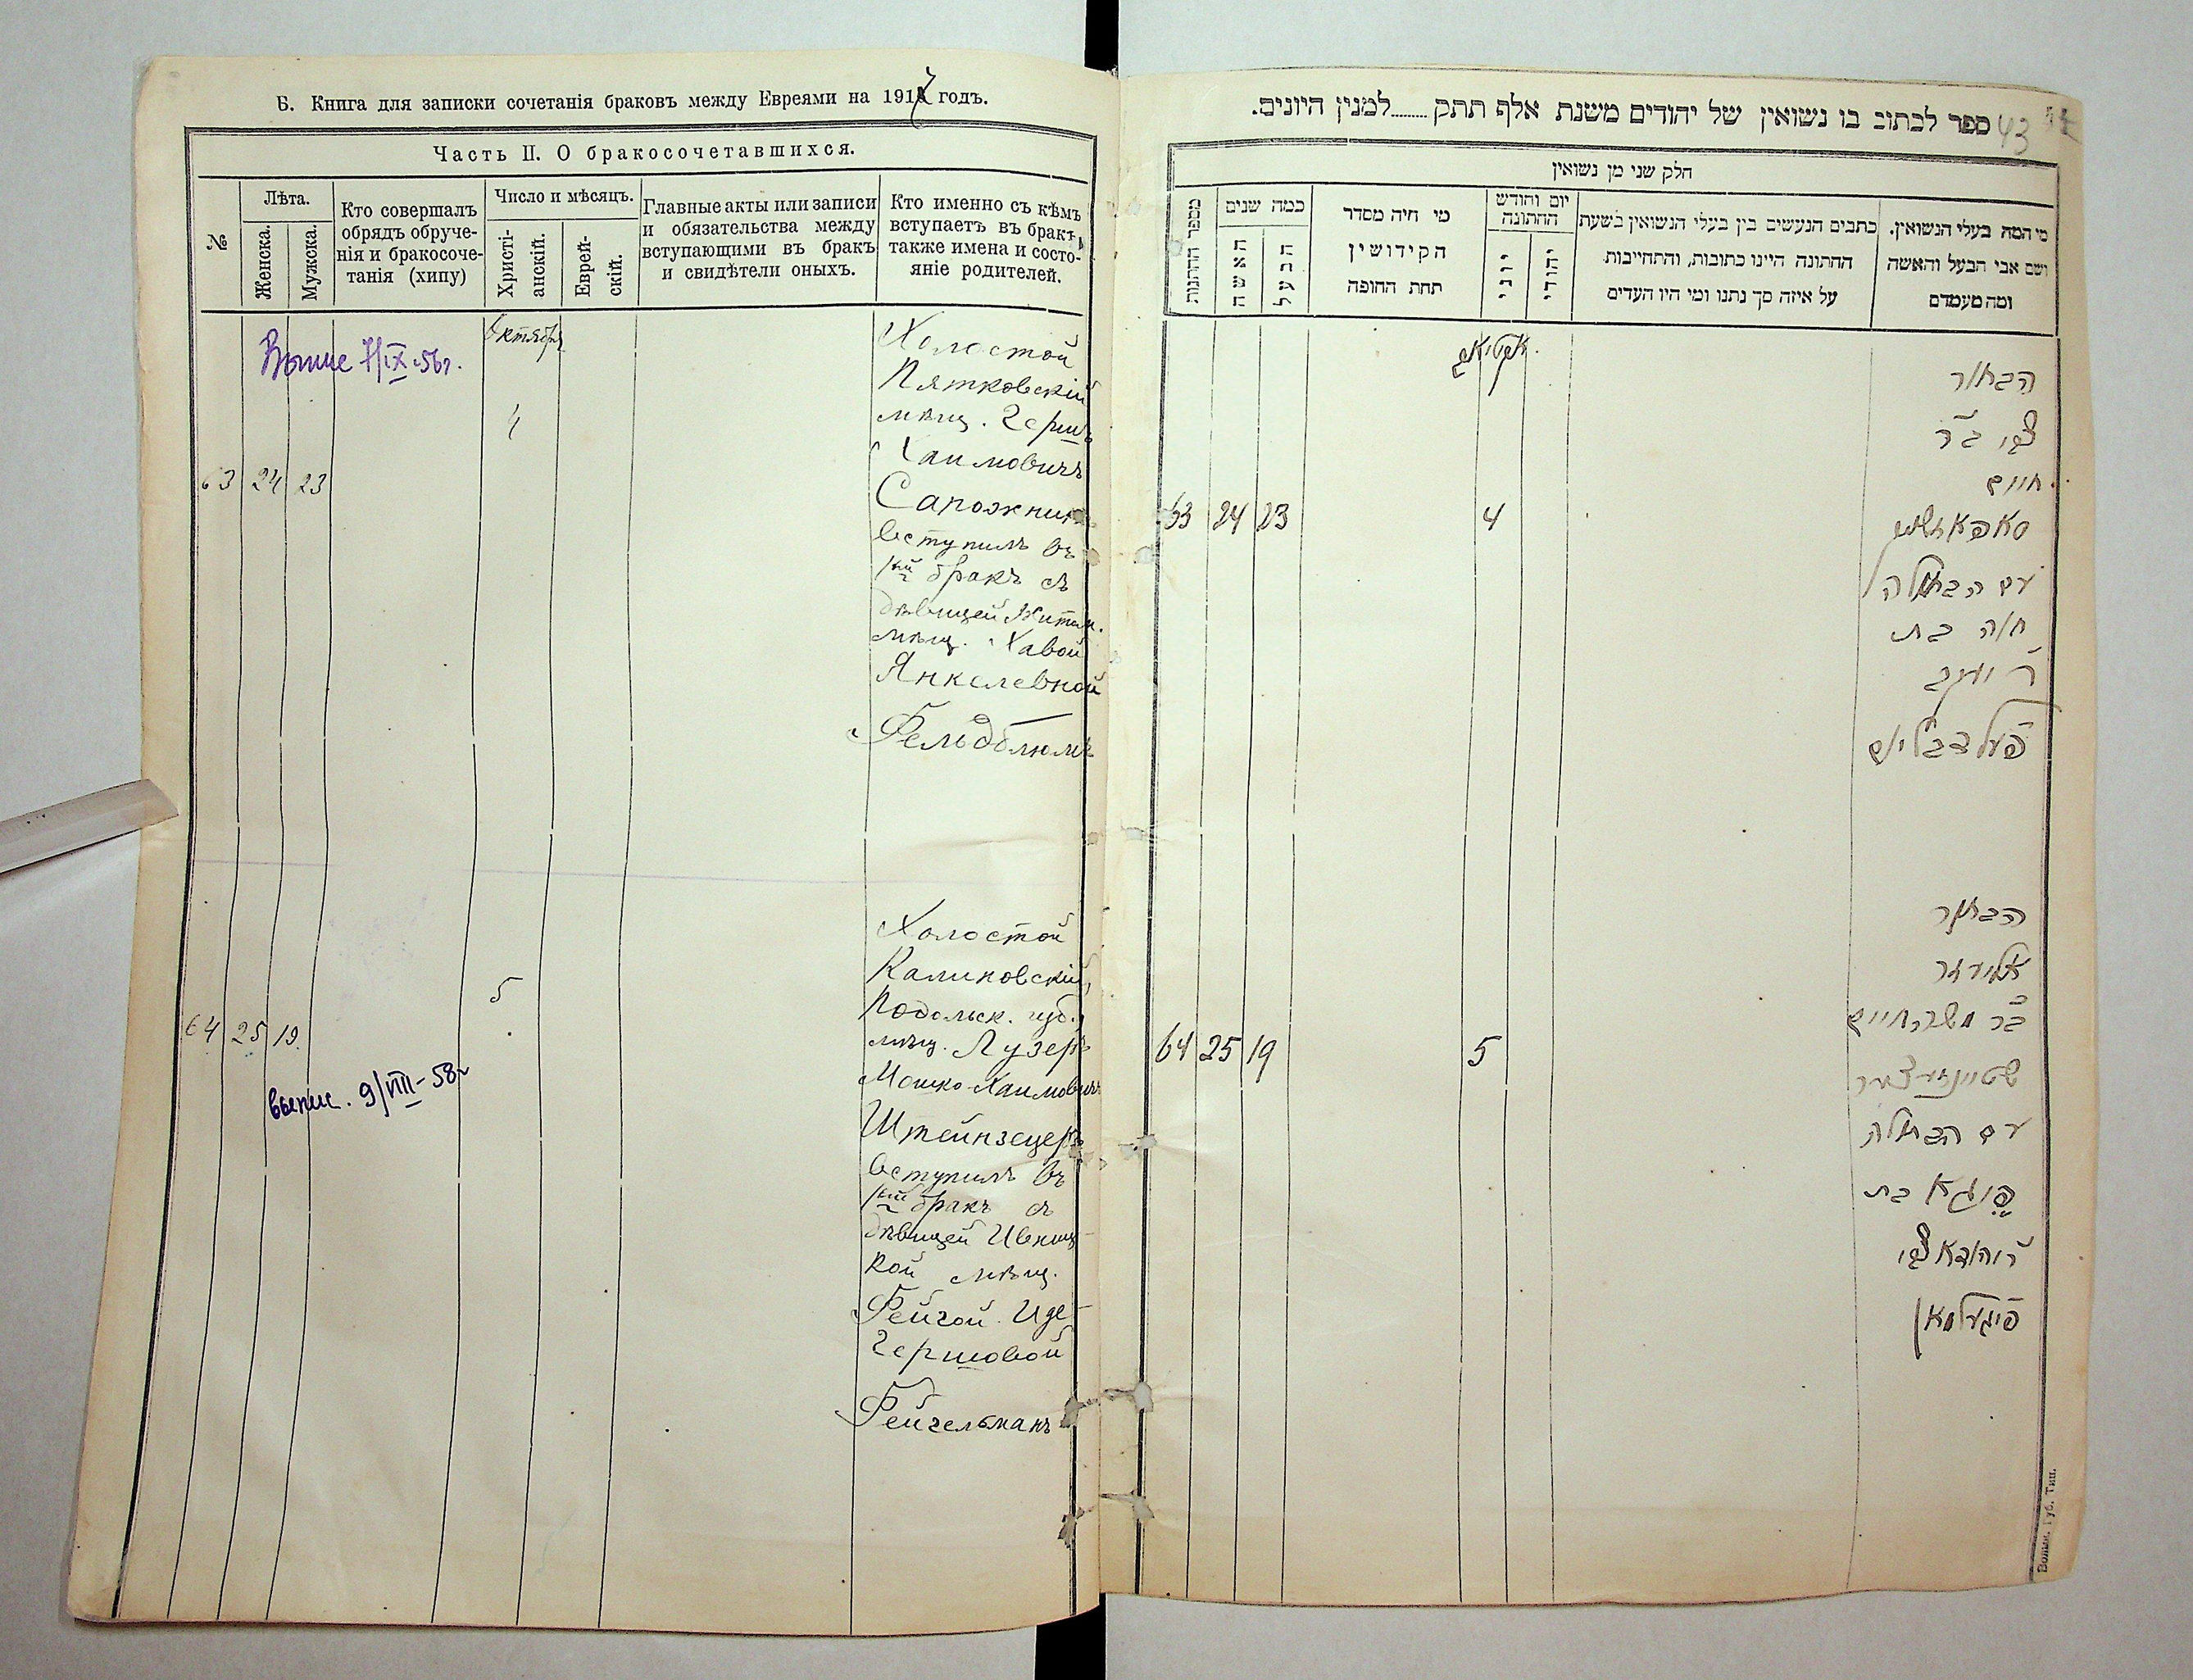 Б. Книга для записки сочетанія браковъ между Евреями на 1917 годъ.
Часть II. О бракосочетавшихся.
№
Лѣта.
Женска.
Мужска.
Кто совершалъ
обрядъ обруче-
нія и бракосоче-
танія (хипу)
Число и мѣсяцъ.
Христі-
анскій.
Еврей-
скій.
Главные акты или записи
и обязательства между
вступающими въ бракъ
и свидѣтели оныхъ.
Кто именно съ кѣмъ
вступаетъ въ бракъ,
также имена и состо-
яніе родителей.
Октября
Холостой
Пятковскій
мѣщ. Гершъ
Хаимовичъ
Сапожникъ
вступилъ въ
1ый бракъ съ
дѣвицей Житом.
мѣщ. Хавой
Янкелевной
Фельдблюмъ
63 24 23
4
Холостой
Калиновскій,
Подольск. губ.
мѣщ. Лузеръ
Мошко-Хаимовичъ
Штейнзецеръ
вступилъ въ
1ый бракъ съ
дѣвицей Ивниц-
кой мѣщ.
Фейгой Иде-
Гершовой
Фейгельманъ
64 25 19
5
выпис. 9/VIII-58г
ספר לכתוב בו נשואין של יהודים משנת אלף תתק........למנין היונים.
43
חלק שני מן נשואין
מספר החתונות
כמה שנים
האשה
הבעל
מי היה מסדר
הקידושין
תחת החופה
יום וחודש
החתונה
יוני
יהודי
כתבים הנעשים בין בעלי הנשואין בשעת
החתונה היינו כתובות, והתחייבות
על איזה סך נתנו ומי היו העדים
מי המה בעלי הנשואין.
ושם אבי הבעל והאשה
ומה מעמדם
הבחור
צבי ב"ר
חיים
סאפאזשניק
עם הבתולה
חוה בת
ר' יעקב
פעלדבליום
63 24 23
4
הבחור
אליעזר
ב"ר משה חיים
שטיינזעצער
עם הבתולה
פייגא בת
ר' יהודא צבי
פייגעלמאן
64 25 19
5
Волын. Губ. Тип.